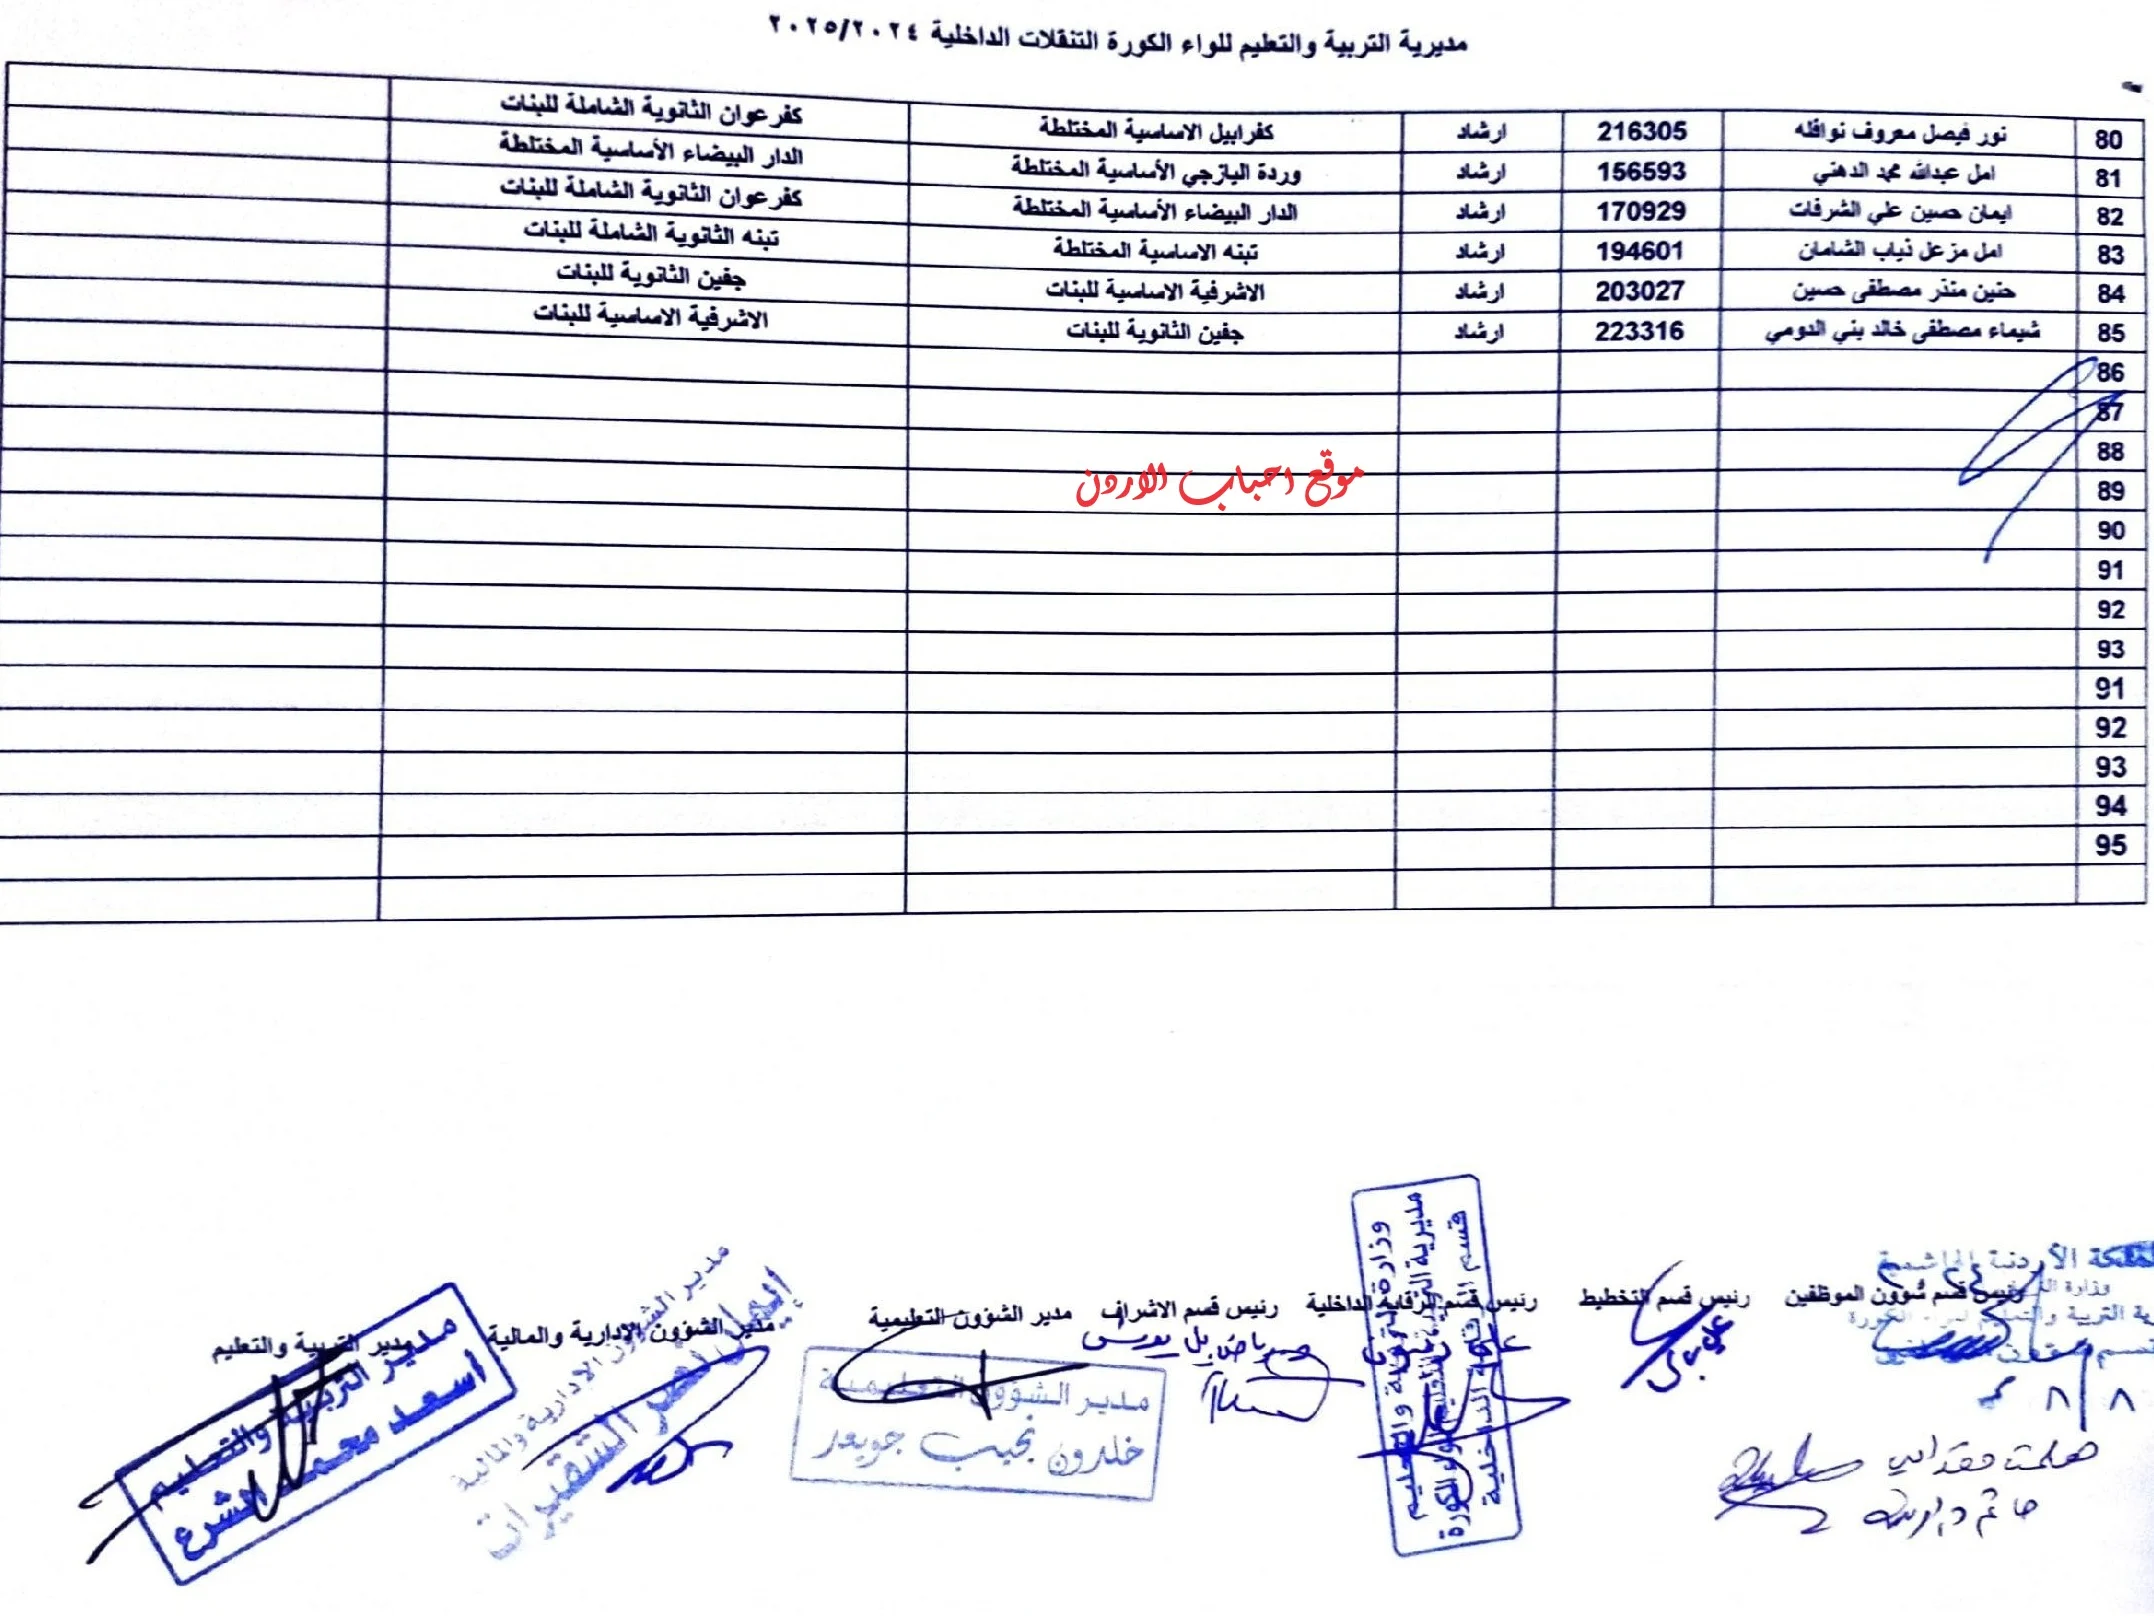 مديرية التربية والتعليم للواء الكورة التنقلات الداخلية ٢٠٢٥/٢٠٢٤
80 نور فيصل معروف نوافله 216305 ارشاد كفرابيل الاساسية المختلطة كفرعوان الثانوية الشاملة للبنات
81 امل عبدالله محمد الدهني 156593 ارشاد وردة اليازجي الأساسية المختلطة الدار البيضاء الأساسية المختلطة
82 ايمان حسين علي الشرفات 170929 ارشاد الدار البيضاء الأساسية المختلطة كفرعوان الثانوية الشاملة للبنات
83 امل مزعل ذياب الشامان 194601 ارشاد تبنه الاساسية المختلطة تبنه الثانوية الشاملة للبنات
84 حنين منذر مصطفى حسين 203027 ارشاد الاشرفية الاساسية للبنات جفين الثانوية للبنات
85 شيماء مصطفى خالد بني الدومي 223316 ارشاد جفين الثانوية للبنات الاشرفية الاساسية للبنات
86
87
88
موقع احباب الاردن
89
90
91
92
93
91
92
93
94
95
رئيس قسم شؤون الموظفين رئيس قسم التخطيط رئيس قسم الرقابة الداخلية رئيس قسم الاشراف مدير الشؤون التعليمية مدير الشؤون الادارية والمالية مدير التربية والتعليم
وزارة التربية والتعليم
قسم الرقابة الداخلية
مدير الشؤون التعليمية
خلدون نجيب جويعد
مدير الشؤون الادارية والمالية
الشقيرات
مدير التربية والتعليم
أسعد محمد الشرع